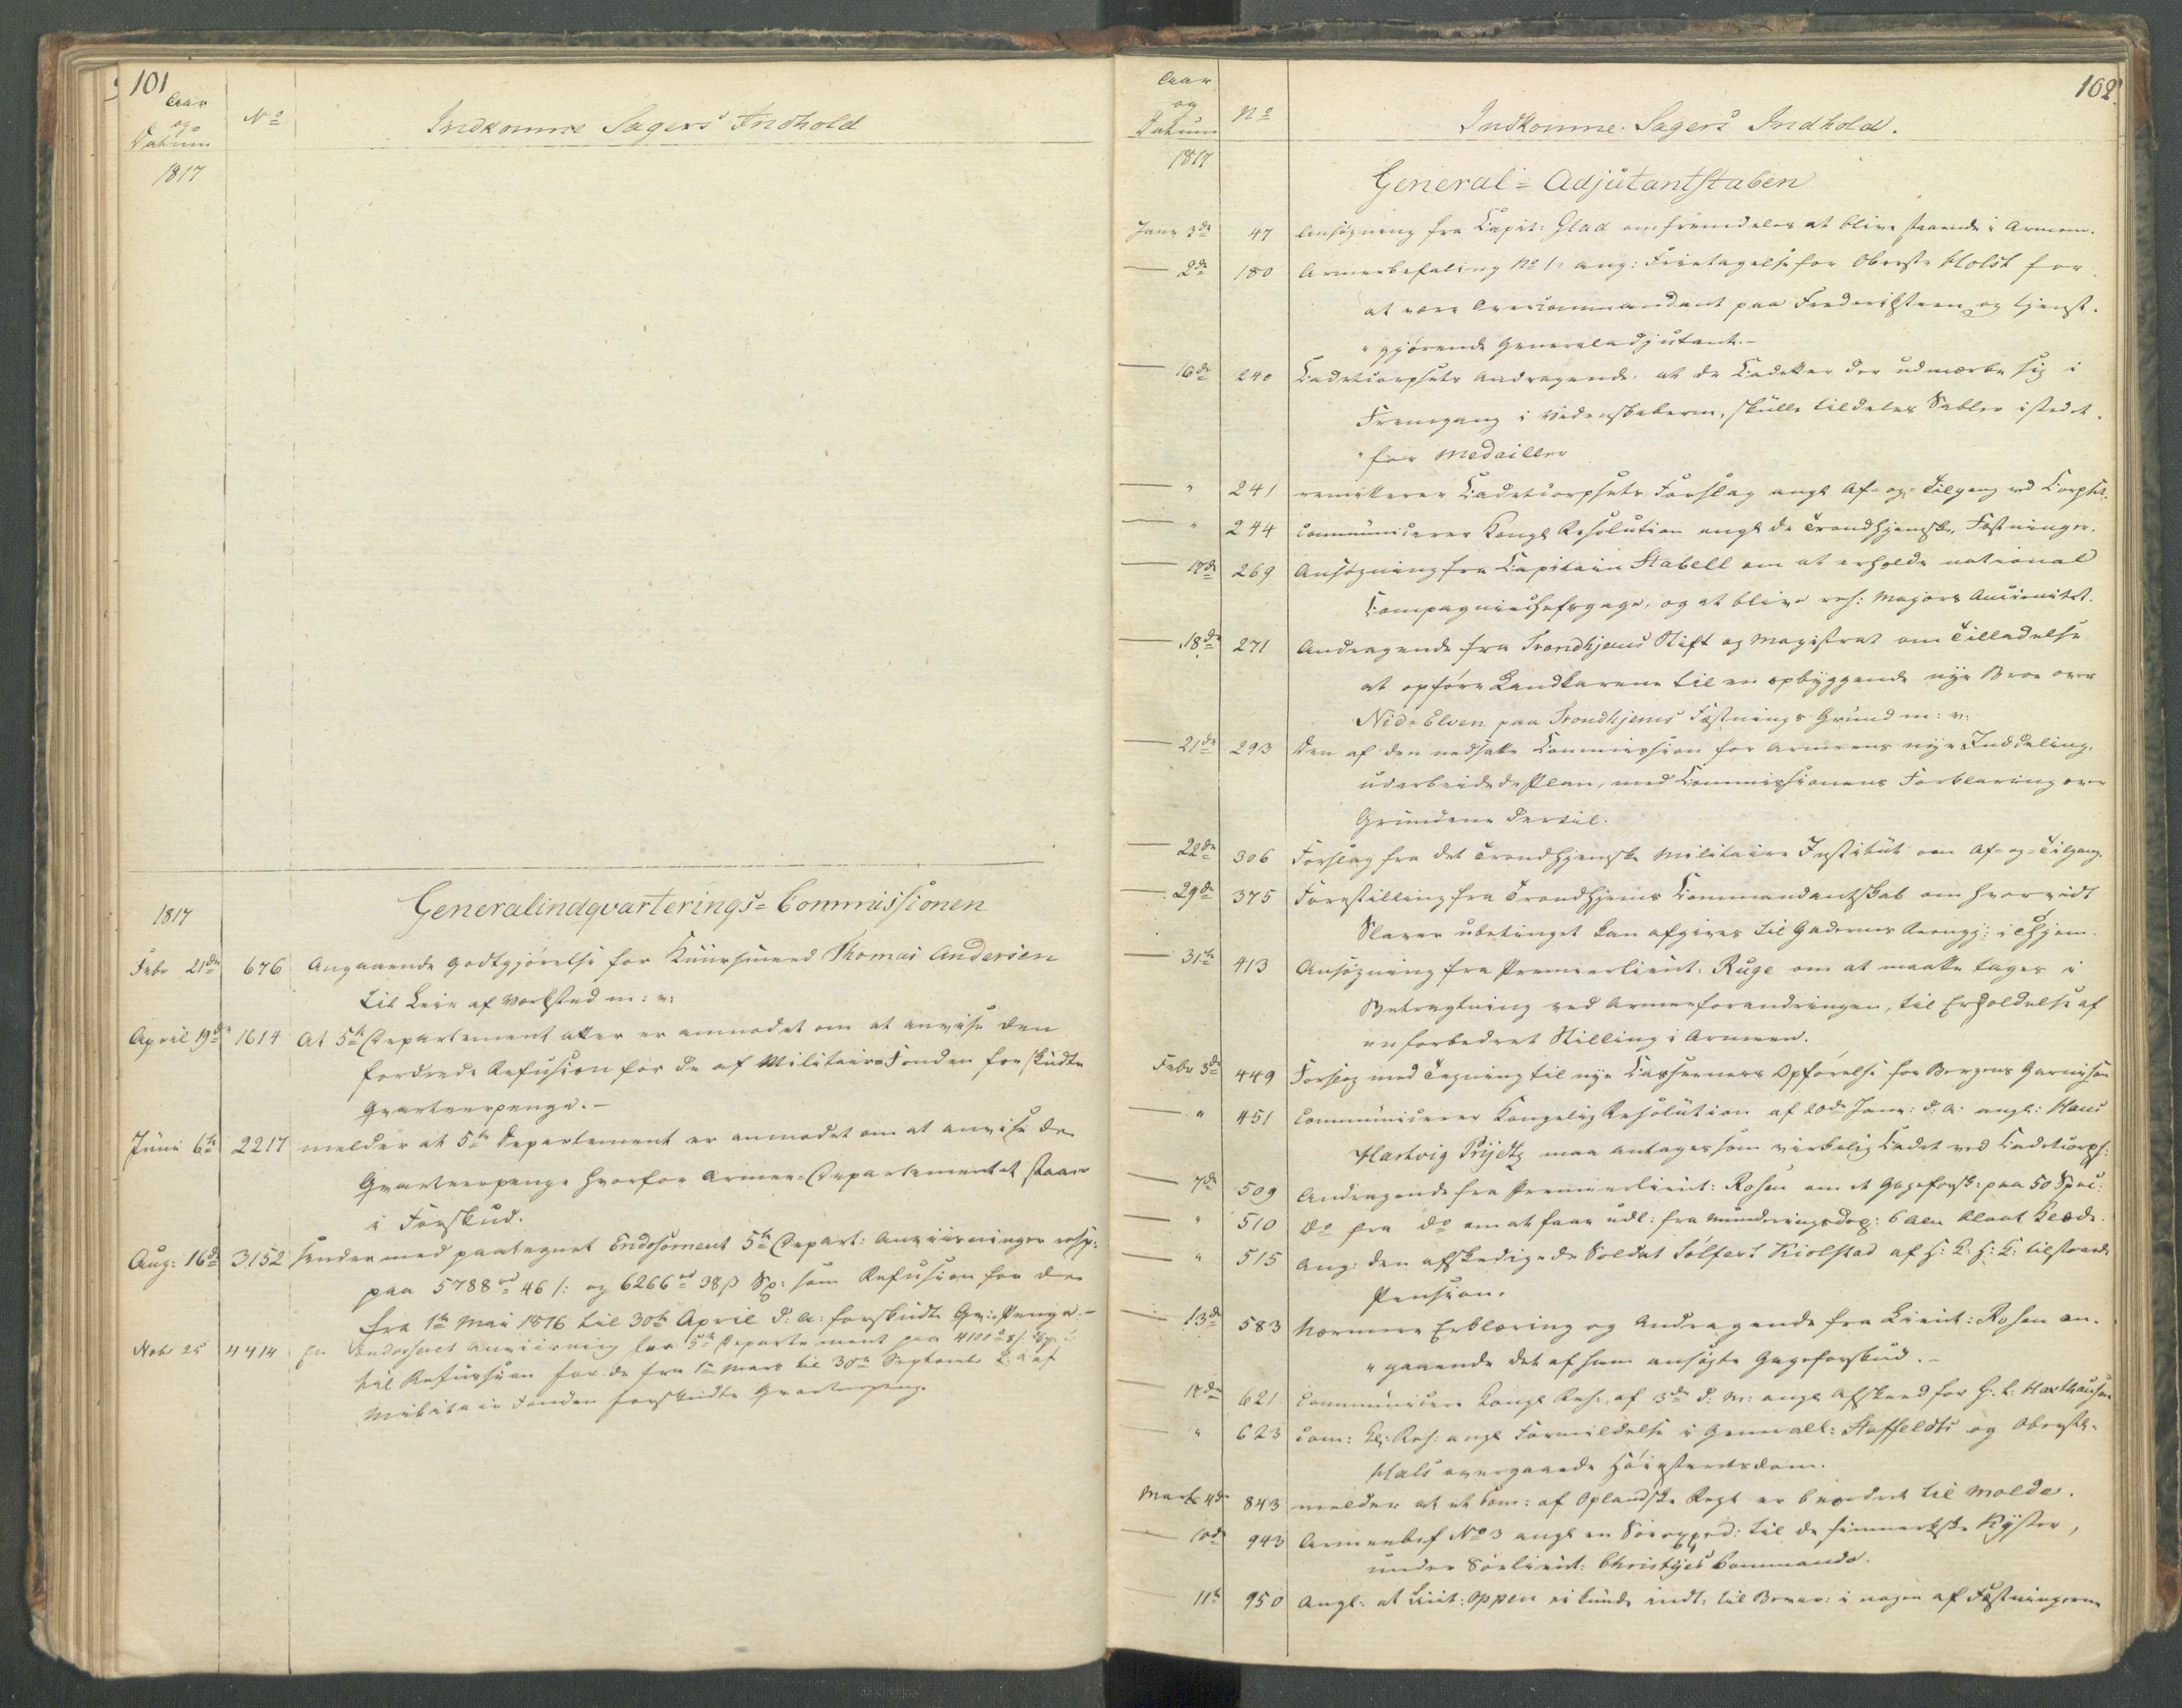 101
Aar
og
Datum
No
Indkomne Sagers Indhold
1817
1817
Generalindqvarterings-Commissionen
Febr 21de 676 Angaaende Godtgjörelse for Thomas Andersen
til Leie af Værksted m: v:
April 19de 1614 At 5te Departement atter er anmodet om at anvise den
fordrede Refusion for de af Militaire Fonden forskudte
Qvarteerpenge.-
Juni 6te 2217 melder at 5te Departement er anmodet om at anvise de
Qvarteerpenge hvorfor Armee-Departementet staaer
i Forskud.
Aug: 16de 3152 sender med paategnet Endosement 5te Depart: Anviisninger resp:
paa 5788 46 s: og 6266 38 s Sp: som Refusion for de
fra 1te Mai 1816 til 30te April d: a: forskudte Qv: Penge.-
Nobr 25 4414 En Endosseret Anviisning fra 5te Departement paa
til Refusion for de fra 1te Mars til 30te Septembr d. a af
Militair Fonden forskudte Qvarteerpenge.
102
Aar
og
Datum
No
Indkomne Sagers Indhold.
1817
General-Adjutantstaben
Janr 3de 47 Ansøgning fra Capit: Glad om fremdeles at blive staaende i Armeen.
— 2de 180 Armeebefaling No 1, ang: Fritagelse for Oberste Holst for
at være Overcommandant paa Frederiksteen og tjenst-
" gjörende Generaladjutant.-
— 16de 240 Cadetcorpsets Andragende, at de Cadetter der udmærke sig i
Fremgang i Videnskaberne, skulle tildeles Sabler istedet-
" for Medailler
— " 241 remitterer Cadetcorpsets Forslag angl Af- og Tilgang ved Corpset.
— " 244 communicerer Kongl Resolution angl de Trondhjemske Fæstninger.
— 17de 269 Ansøgning fra Capitain Stabell om at erholde national
Compagniechefsgage, og at blive res: Majors Anciennitet.
— 18de 271 Andragende fra Trondhjems Stift og Magistrat om Tilladelse
at opføre Landkarene til en opbyggende nye Broe over
Nid-Elven paa Trondhjems Fæstnings Grund m: v:
— 21de 293 Den af den nedsatte Commission for Armeens nye Inddeling,
udarbeidede Plan, med Commissionens Forklaring over
Grundene dertil.
— 22de 306 Forslag fra det Trondhjemske Militaire Institut om Af- og Tilgang.
— 29de 375 Forestilling fra Trondhjems Commandantskab om hvorvidt
Slaver ubetinget kan afgives til Gadernes Reengj: i Thjem.
— 31te 413 Ansøgning fra Premierlieut: Ruge om at maatte tages i
Betragtning ved Armeeforandringen, til Erholdelse af
en forbedret Stilling i Armeen.
Febr 3de 449 Forslag med Tegning til nye Casserners Opførelse for Bergens Garnison
— " 451 communicerer Kongelig Resolution af 20de Janr: d: a: angl: Hans
Hartvig Prijdtz maa antages som virkelig Cadet ved Cadetcorps:
— 7de 509 Andragende fra Premierlieut: Rosen om et Gageforsk: paa 50 Spec:
— " 510 do fra do om at faae udl: fra Munderingsdep: 6 Alen blaat Klæde.
— " 515 ang: den afskedigede Soldat Sølfest Kiolstad af tilstaaede
Pension.
— 13de 583 Nærmere Erklæring og Andragende fra Lieut: Rosen an-
" gaaende det af ham ansøgte Gageforskud.-
— 18de 621 communicere Kongl Res: af 3de d: M: angl Afskeed for G: L: Haxthausen
— " 623 com: Kl: Res: angl Formildelse i Generall: Staffeldts og Oberstl-
Hals overgaaede Höiesteretsdom.
Marts 4de 843 melder at et Com: af Oplandske Regt er beordret til Molde.
— 10de 943 Armeebef No 3 angl en Söeexped: til de finmarkske Kyster,
under Sölieut: Christies Commando.
— 11te 950 Angl: at Lieut: Oppen ei kunde indt: til i nogen af Fæstningerne